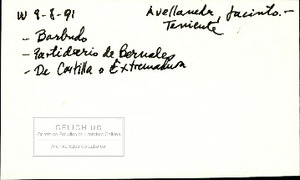 W 9-8-91
Avellaneda, Jacinto.-
Teniente
- Barbudo
- Partidario de Bernales
- De Castilla o Extremadura
CELICH UC
Centro de Estudios de Literatura Chilena